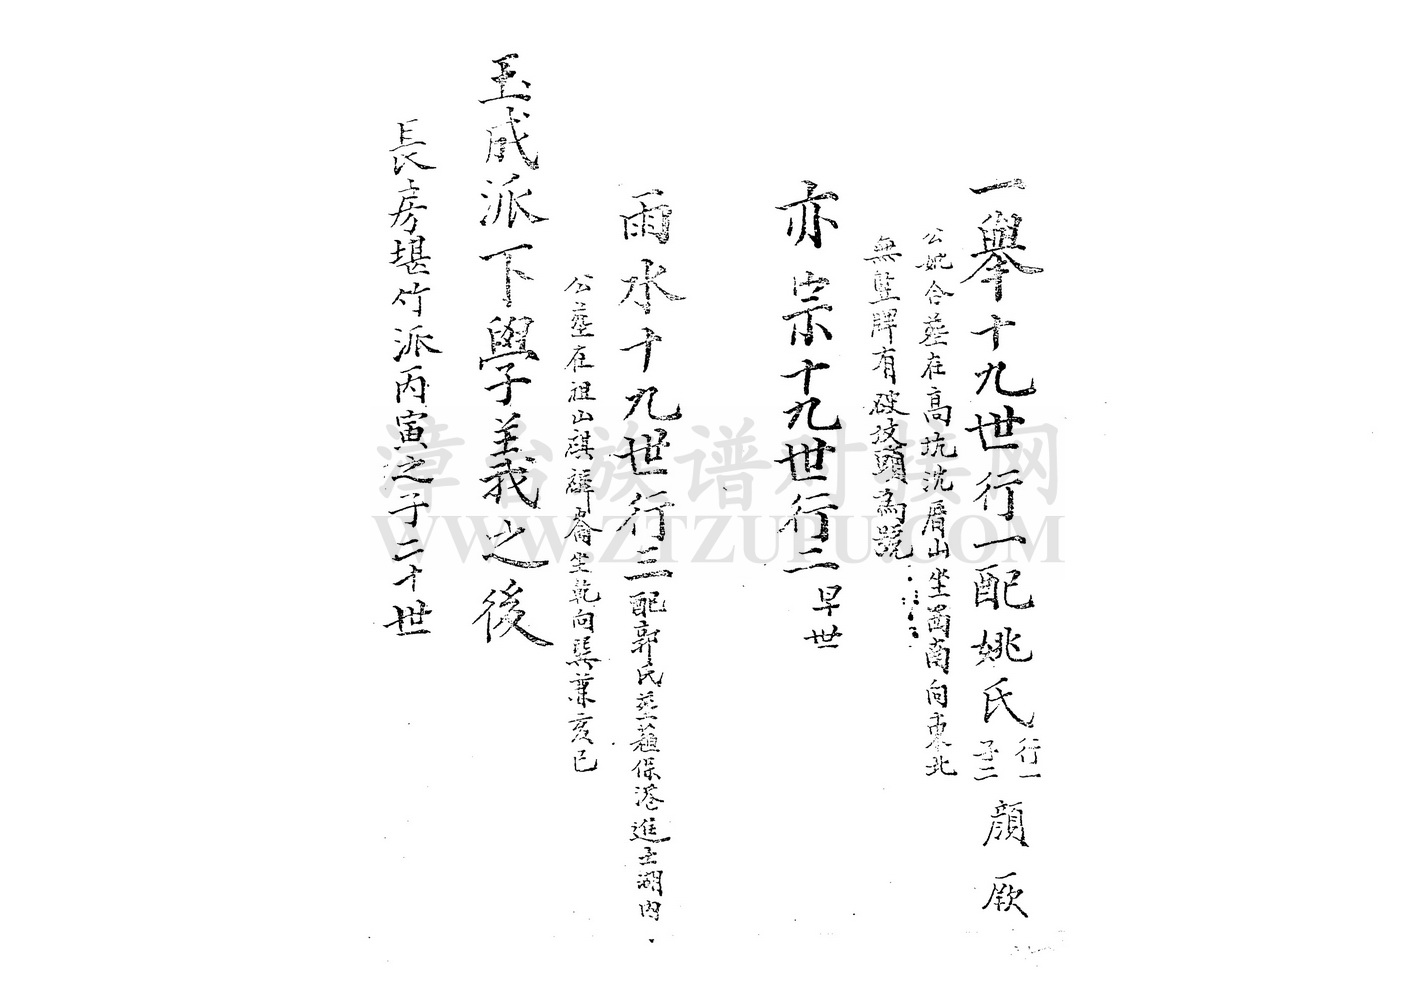 一舉十九世行一配姚氏 行一 子二 顔 厥
公妣合塟在高坑沈厝山坐西南向東北
無竪牌有破坟頭為號
亦宗十九世行二 早世
雨水十九世行三 配郭氏塟蘓保港進士湖内
公塟在祖山麒麟崙坐乾向巽兼亥巳
玉成派下學孟義之後
長房堪竹派丙寅之子二十世
漳台族谱对接网
WWW.ZTZUPU.COM